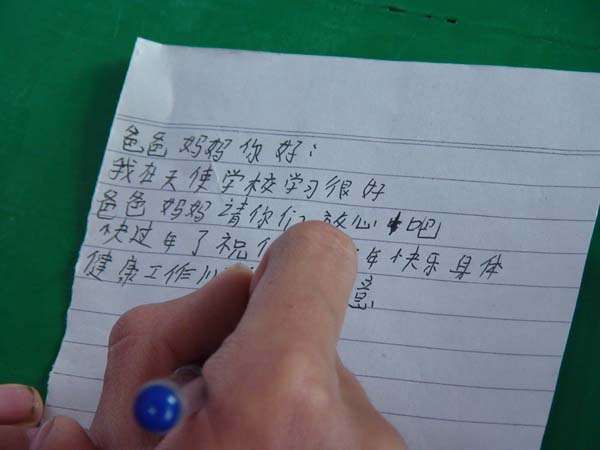 爸爸妈妈你好：
我在天使学校学习很好
爸爸妈妈请你们放心吧
快过年了祝 年快乐身体
健康工作 意